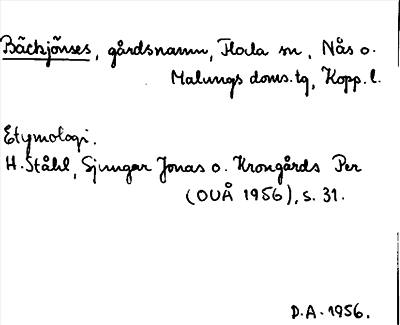 Bäckjönses, gårdsnamn, Floda sn, Nås o.
Malungs doms.tg, Kopp. l.
Etymologi.
H. Ståhl, Sjungar Jonas o. Krongårds Per
(OUÅ 1956), s. 31.
D.A. 1956.